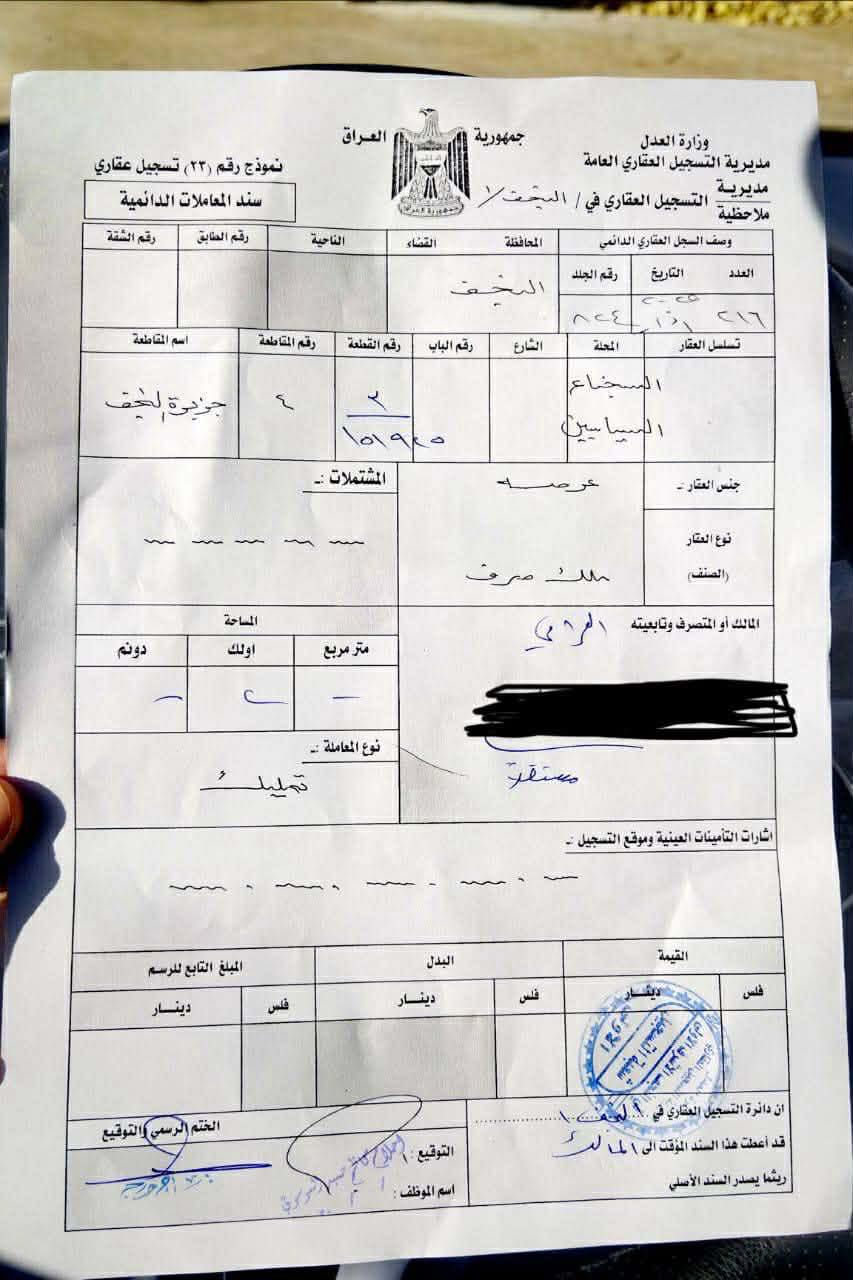 جمهورية العراق
وزارة العدل
مديرية التسجيل العقاري العامة
مديرية
ملاحظية
التسجيل العقاري في / النجف /١
نموذج رقم (٢٣) تسجيل عقاري
سند المعاملات الدائمية
وصف السجل العقاري الدائمي
المحافظة
القضاء
الناحية
رقم الطابق
رقم الشقة
العدد
التاريخ
رقم الجلد
النجف
٢١٦
تسلسل العقار
المحلة
الشارع
رقم الباب
رقم القطعة
رقم المقاطعة
اسم المقاطعة
السجناء
السياسيين
٣
١٥١٩٢٥
٤
جزيرة النجف
جنس العقار :-
عرصه
نوع العقار
(الصنف)
ملك صرف
المشتملات :-
المالك أو المتصرف وتابعيته
العراقي
مستقلاً
المساحة
متر مربع
اولك
دونم
-
٢
-
نوع المعاملة :-
تمليك
اشارات التأمينات العينية وموقع التسجيل :-
القيمة
البدل
المبلغ التابع للرسم
فلس
دينـــار
فلس
دينـــار
فلس
دينـــار
ان دائرة التسجيل العقاري في النجف ١
قد أعطت هذا السند المؤقت الى المالك
ريثما يصدر السند الأصلي
التوقيع :
اسم الموظف :
الختم الرسمي والتوقيع